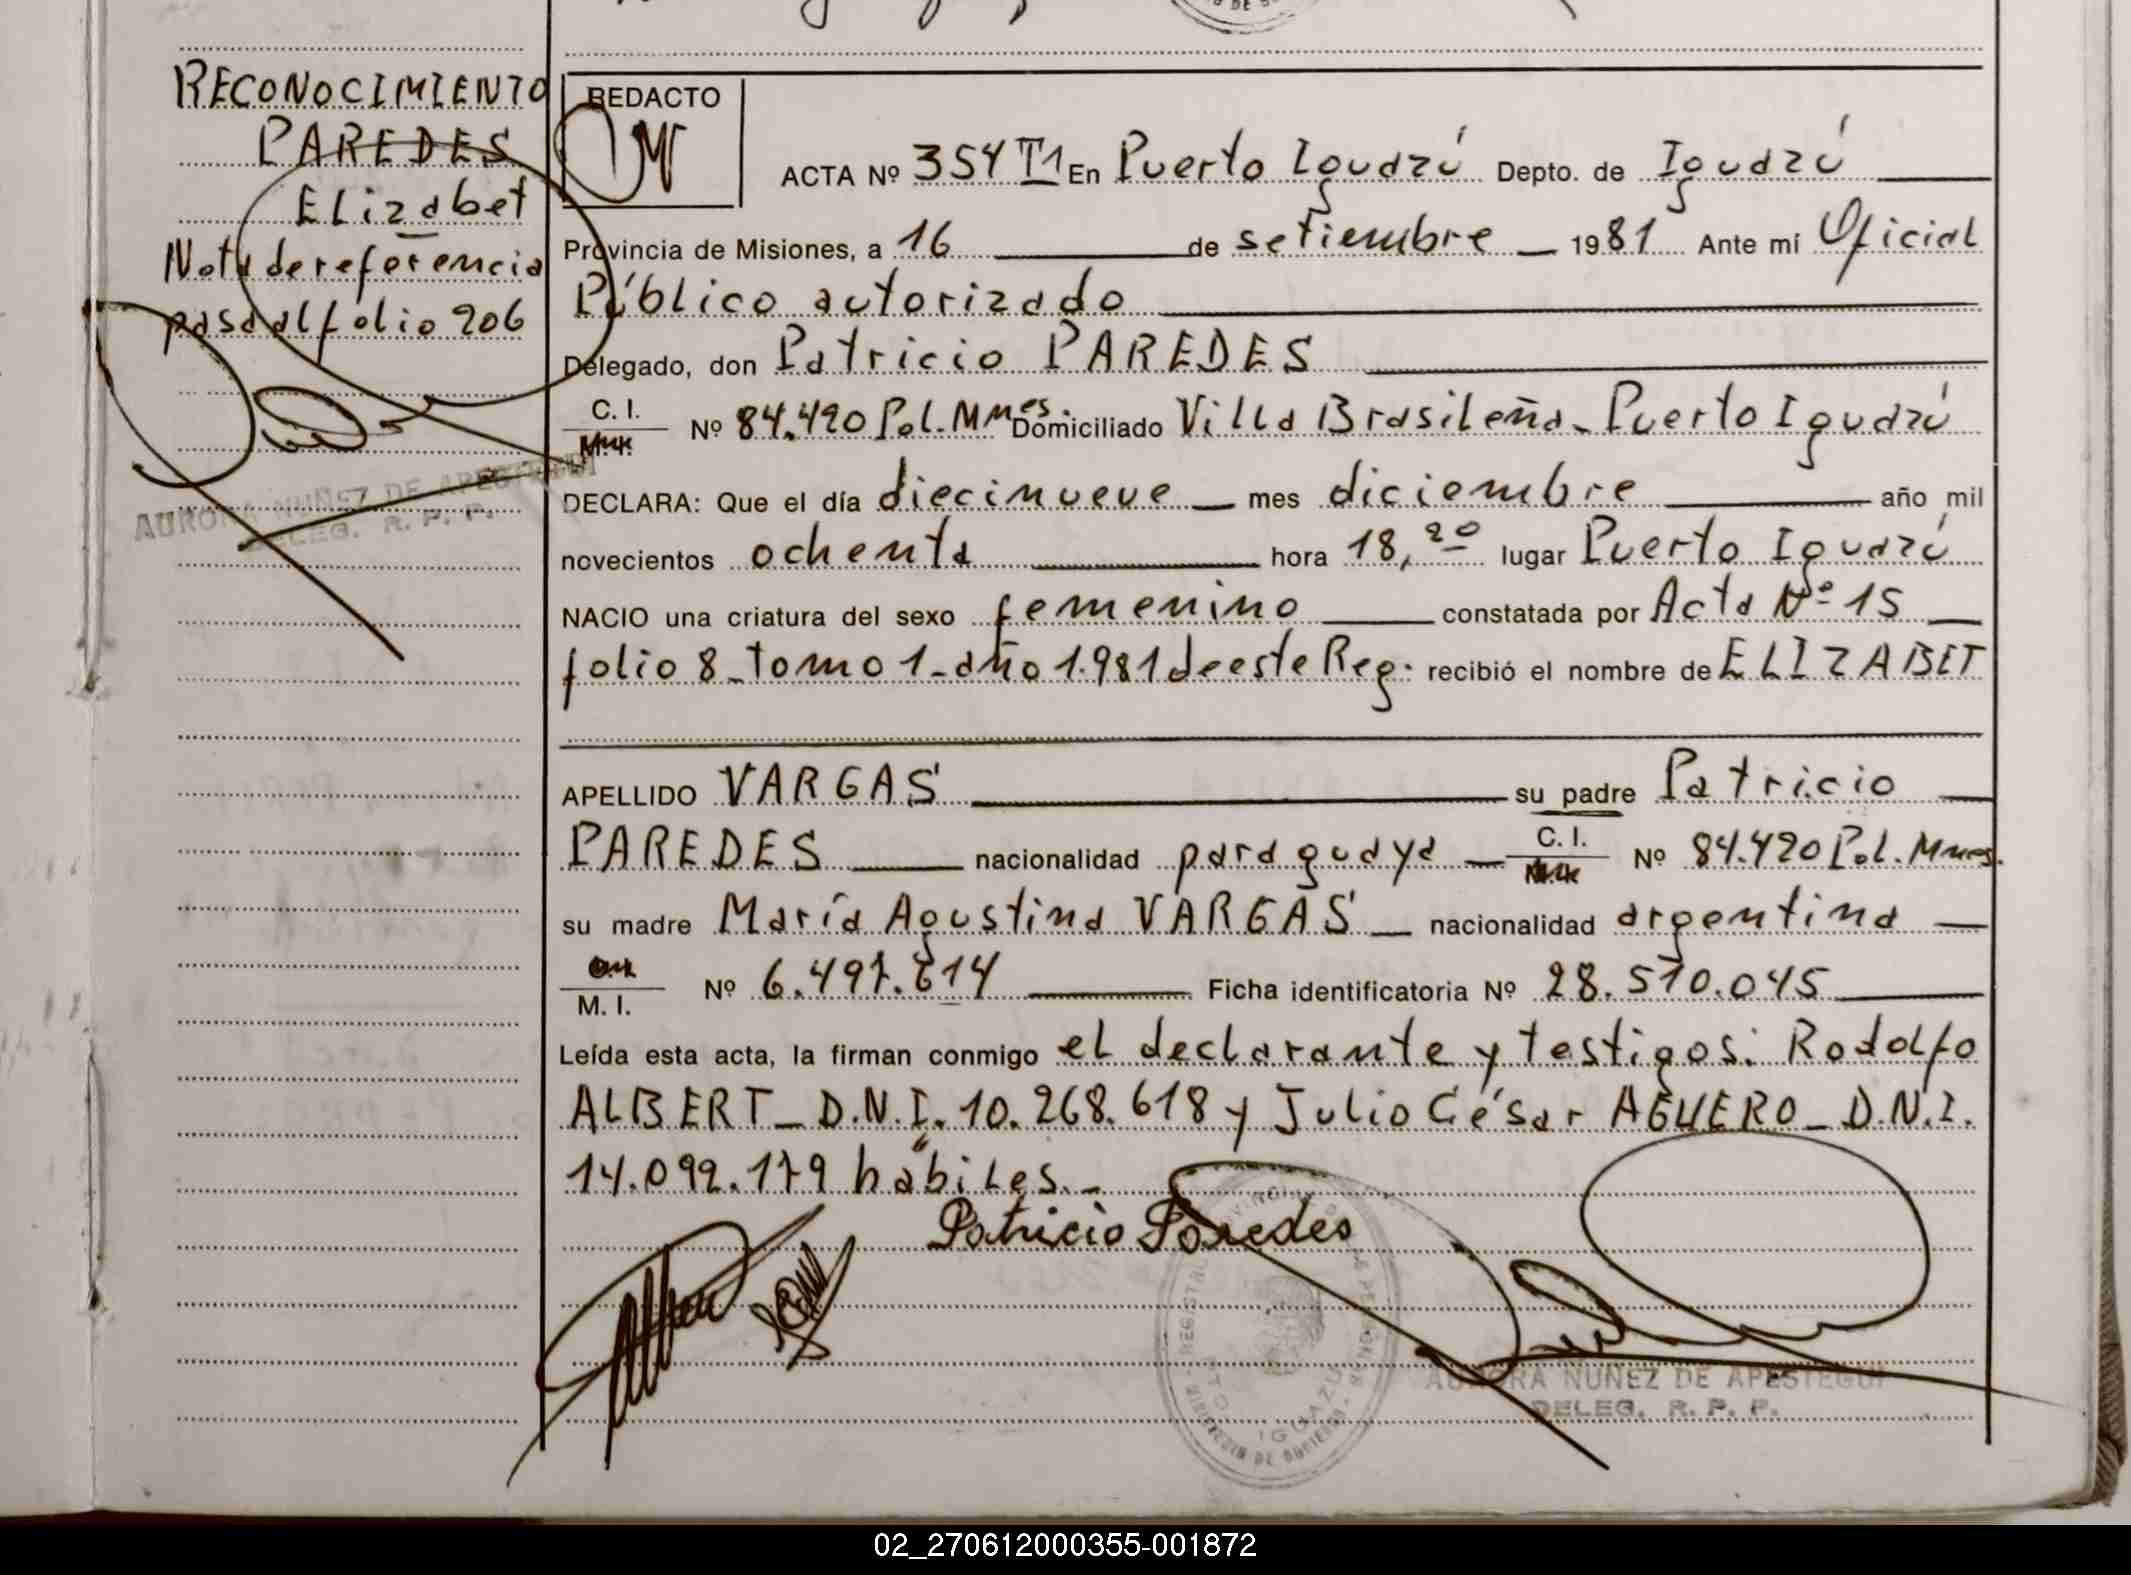 RECONOCIMIENTO
PAREDES
Elizabet
Nota de referencia
pasa al folio 206
AURORA NUÑEZ DE APESTEGUI
DELEG. R. P. P.
REDACTO
ACTA Nº 354 T1 En Puerto Iguazú Depto. de Iguazú
Provincia de Misiones, a 16 de setiembre 1981 Ante mí Oficial
Público autorizado
Delegado, don Patricio PAREDES
C. I.
Nº 84.420 Pol. Mnes. Domiciliado Villa Brasileña - Puerto Iguazú
DECLARA: Que el día diecinueve mes diciembre año mil
novecientos ochenta hora 18,20 lugar Puerto Iguazú
NACIO una criatura del sexo femenino constatada por Acta Nº 15
folio 8 - tomo 1 - año 1.981 de este Reg. recibió el nombre de ELIZABET
APELLIDO VARGAS su padre Patricio
PAREDES nacionalidad paraguaya C. I. Nº 84.420 Pol. Mnes.
su madre María Agustina VARGAS nacionalidad argentina
M. I. Nº 6.497.814 Ficha identificatoria Nº 28.570.045
Leída esta acta, la firman conmigo el declarante y testigos: Rodolfo
ALBERT - D.N.I. 10.268.618 y Julio César AGUERO - D.N.I.
14.092.179 hábiles. -
Patricio Paredes
IGUAZU
AURORA NUÑEZ DE APESTEGUI
DELEG. R. P. P.
02_270612000355-001872